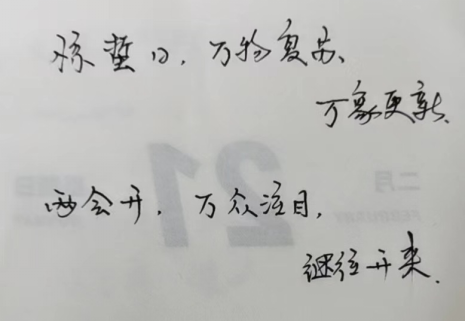 惊蛰日，万物复苏、
万象更新。
两会开，万众注目，
继往开来。
21
二月